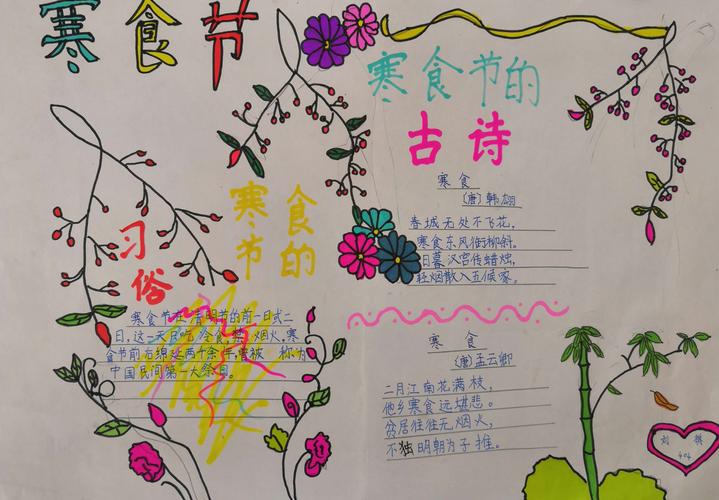 寒食节
寒食
节的
习
俗
寒食节在清明节的前一日或二
日,这一天只吃冷食,禁烟火,寒
食节前后绵延两千余年,曾被称为
中国民间第一大祭日。
寒食节的
古诗
寒食
(唐)韩翃
春城无处不飞花,
寒食东风御柳斜。
日暮汉宫传蜡烛,
轻烟散入五侯家。
寒食
(唐)孟云卿
二月江南花满枝,
他乡寒食远堪悲。
贫居往往无烟火,
不独明朝为子推。
刘祺
404